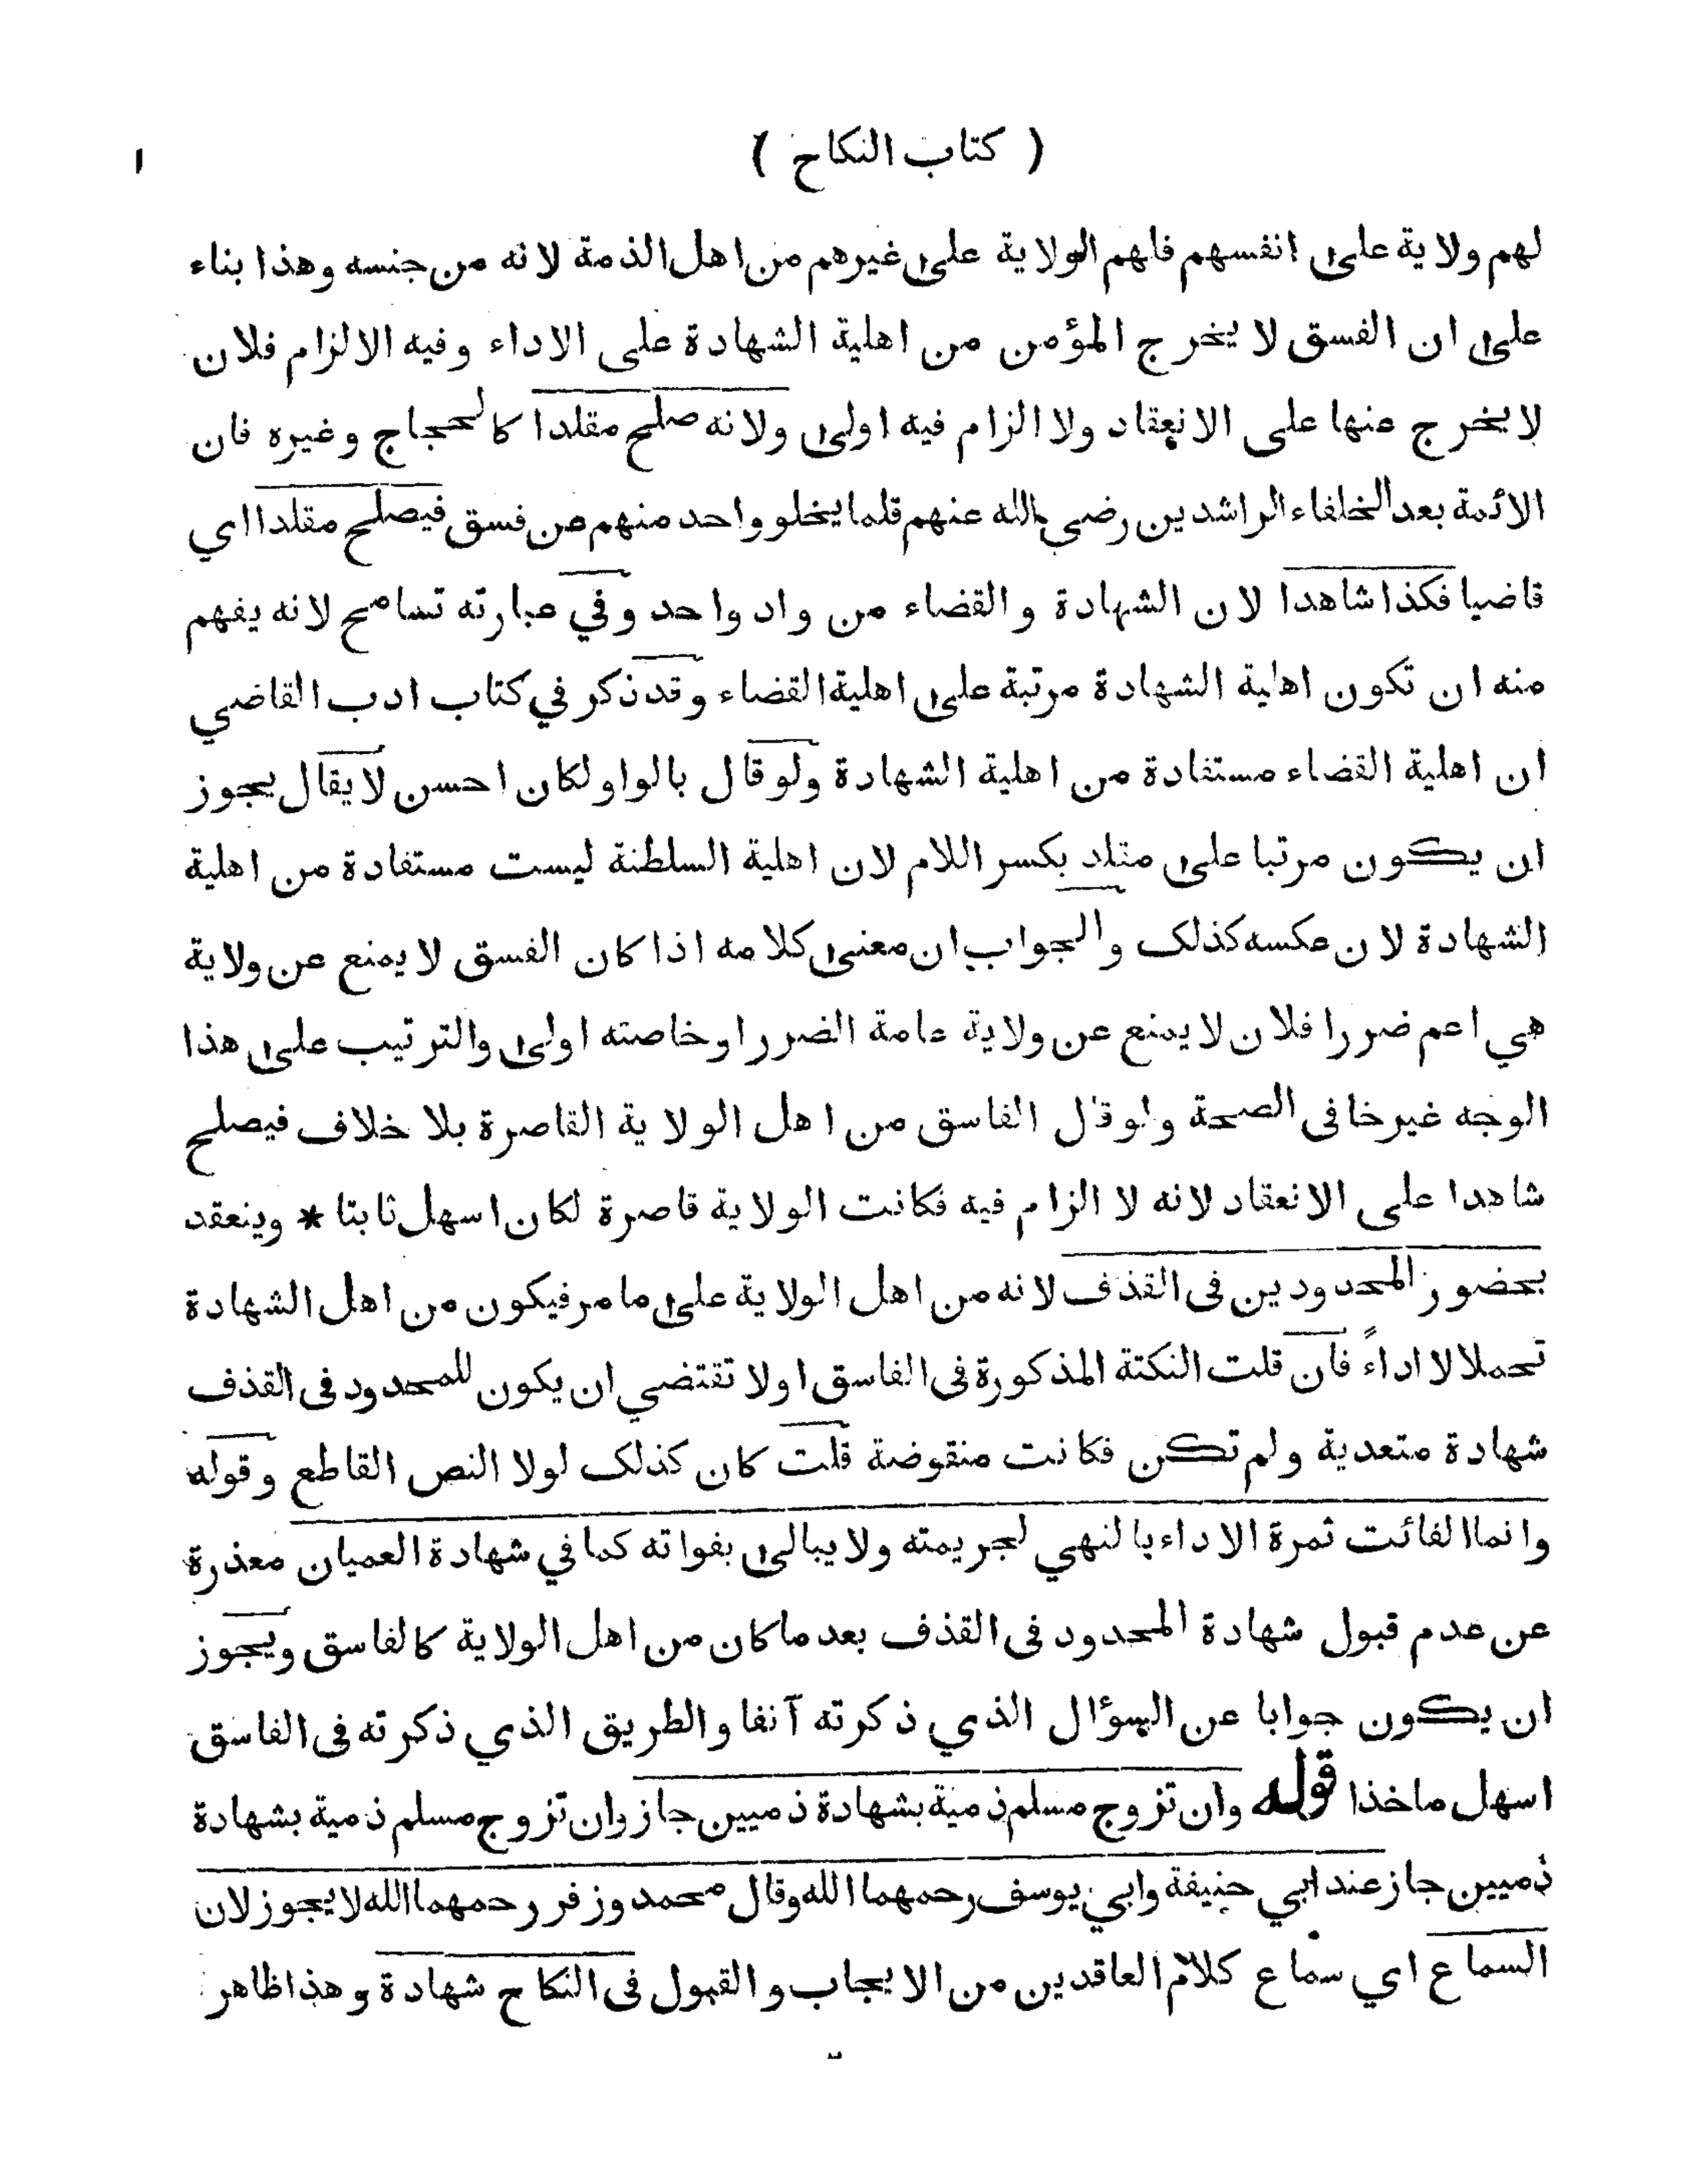 ( كتاب النكاح ) ١
لهم ولاية على انفسهم فلهم الولاية على غيرهم من اهل الذمة لانه من جنسه وهذا بناء
على ان الفسق لا يخرج المؤمن من اهلية الشهادة على الاداء وفيه الالزام فلان
لا يخرج عنها على الانعقاد ولا الزام فيه اولى ولانه صلح مقلدا كالحجاج وغيره فان
الائمة بعد الخلفاء الراشدين رضى الله عنهم قلما يخلو واحد منهم من فسق فيصلح مقلدا اي
قاضيا فكذا شاهدا لان الشهادة والقضاء من واد واحد وفي عبارته تسامح لانه يفهم
منه ان تكون اهلية الشهادة مرتبة على اهلية القضاء وقد ذكر في كتاب ادب القاضي
ان اهلية القضاء مستفادة من اهلية الشهادة ولو قال بالواو لكان احسن لا يقال يجوز
ان يكون مرتبا على مقلد بكسر اللام لان اهلية السلطنة ليست مستفادة من اهلية
الشهادة لان عكسه كذلك والجواب ان معنى كلامه اذا كان الفسق لا يمنع عن ولاية
هي اعم ضررا فلان لا يمنع عن ولاية عامة الضرر او خاصته اولى والترتيب على هذا
الوجه غير خافى الصحة ولو قال الفاسق من اهل الولاية القاصرة بلا خلاف فيصلح
شاهدا على الانعقاد لانه لا الزام فيه فكانت الولاية قاصرة لكان اسهل ثابتا * وينعقد
بحضور المحدودين فى القذف لانه من اهل الولاية على ما مر فيكون من اهل الشهادة
تحملا لا اداءً فان قلت النكتة المذكورة فى الفاسق اولا تقتضي ان يكون للمحدود فى القذف
شهادة متعدية ولم تكن فكانت منقوضة قلت كان كذلك لولا النص القاطع وقوله
وانما الفائت ثمرة الاداء بالنهي لجريمته ولا يبالى بفواته كما في شهادة العميان معذرة
عن عدم قبول شهادة المحدود فى القذف بعد ما كان من اهل الولاية كالفاسق ويجوز
ان يكون جوابا عن السؤال الذي ذكرته آنفا والطريق الذي ذكرته فى الفاسق
اسهل ماخذا قوله وان تزوج مسلم ذمية بشهادة ذميين جاز وان تزوج مسلم ذمية بشهادة
ذميين جاز عند ابي حنيفة وابي يوسف رحمهما الله وقال محمد وزفر رحمهما الله لا يجوز لان
السماع اي سماع كلام العاقدين من الايجاب والقبول فى النكاح شهادة وهذا ظاهر